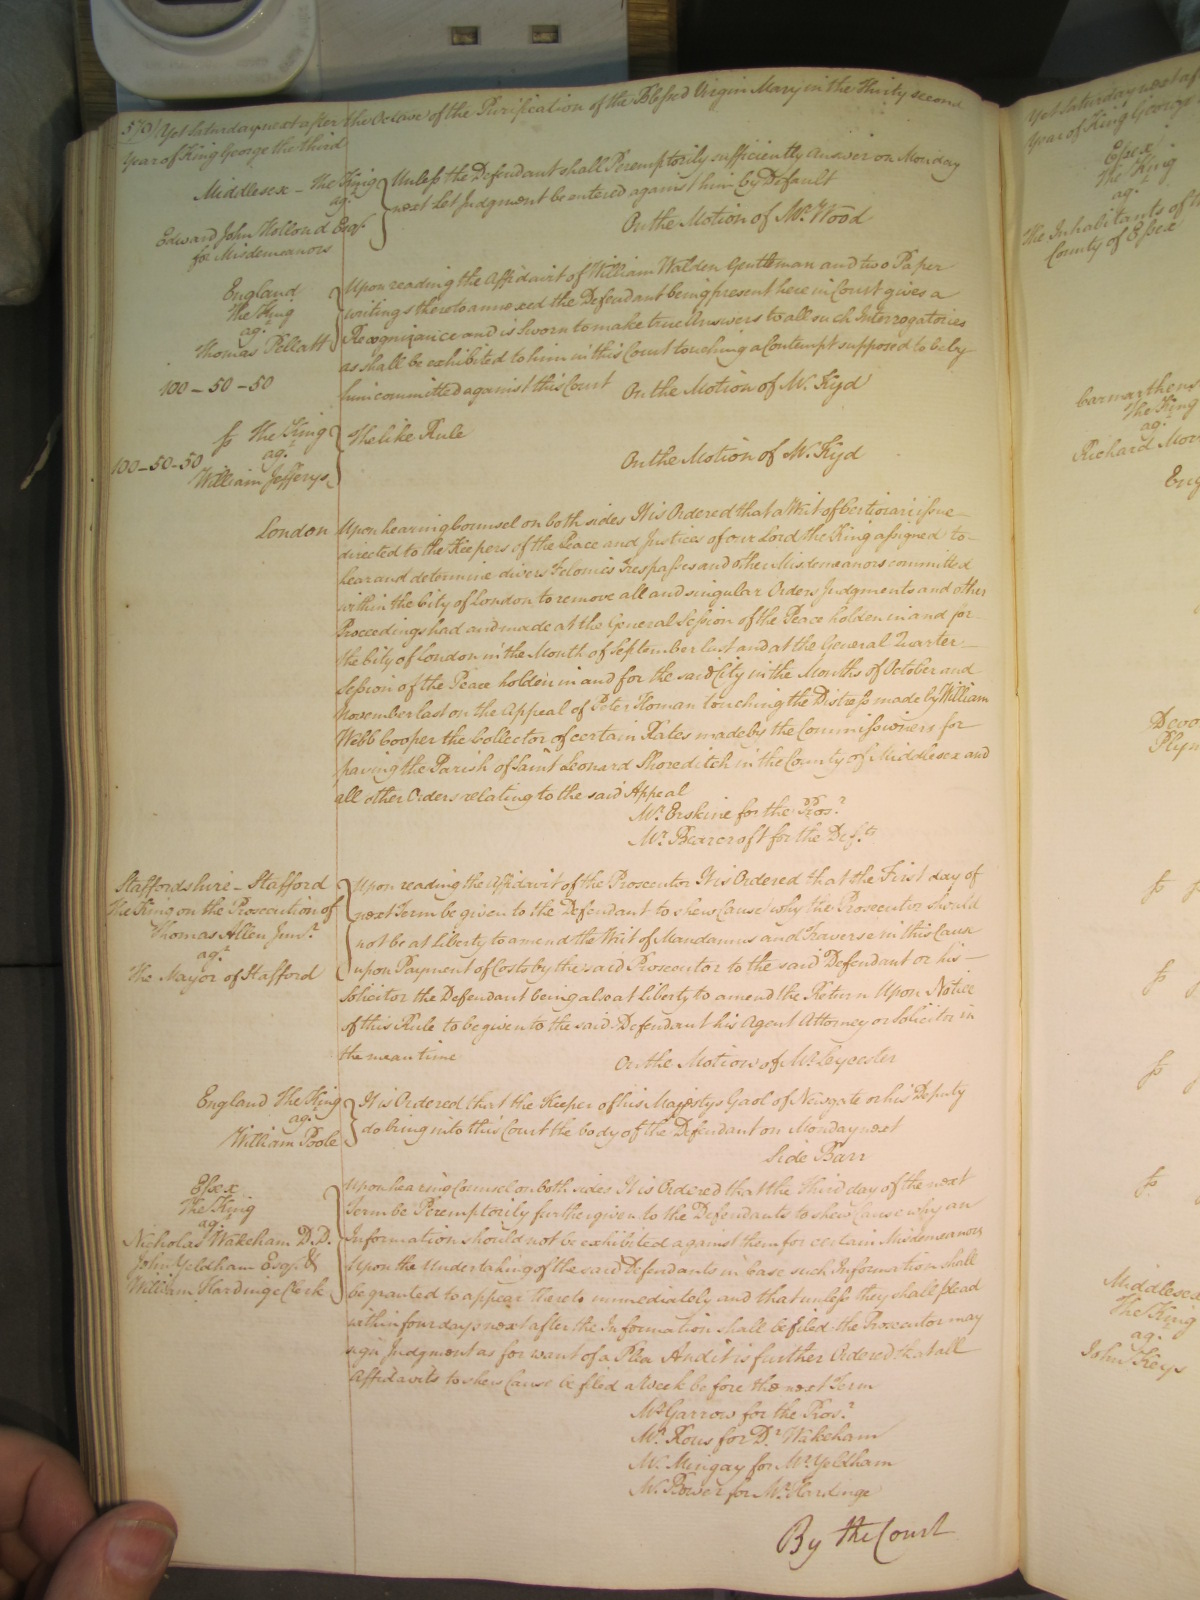 Yet Saturday next after the Octave of the Purification of the Blessed Virgin Mary in the thirty second
Year of King George the third
Middlesex - The King
agt
Edward John Hollond Esqr.
for Misdemeanors
Unless the Defendant shall Peremptorily sufficiently answer on Monday
next let Judgment be entered against him by Default
On the Motion of Mr. Wood
England
The King
agt
Thomas Pellatt
100 - 50 - 50
Upon reading the Affidavit of William Walden Gentleman and two Paper
writings thereto annexed the Defendant being present here in Court gives a
Recognizance and is Sworn to make true Answers to all such Interrogatories
as shall be exhibited to him in this Court touching a Contempt supposed to be by
him committed against this Court
On the Motion of Mr. Kyd
fs The King
agt
100 - 50 - 50
William Jefferys
The like Rule
On the Motion of Mr. Kyd
London
Upon hearing Counsel on both sides It is Ordered that a Writ of Certiorari issue
directed to the Keepers of the Peace and Justices of our Lord the King assigned to
hear and determine divers Felonies Trespasses and other Misdemeanors committed
within the City of London to remove all and singular Orders Judgments and other
Proceedings had and made at the General Session of the Peace holden in and for
the City of London in the Month of September last and at the General Quarter
Session of the Peace holden in and for the said City in the Months of October and
November last on the Appeal of Peter Homan touching the Distress made by William
Webb Cooper the Collector of certain Rates made by the Commissioners for
paving the Parish of Saint Leonard Shoreditch in the County of Middlesex and
all other Orders relating to the said Appeal
Mr. Erskine for the Pros.r
Mr. Bearcroft for the Def.ts
Staffordshire - Stafford
The King on the Prosecution of
Thomas Allen Junr.
agt
The Mayor of Stafford
Upon reading the Affidavit of the Prosecutor It is Ordered that the First day of
next Term be given to the Defendant to shew Cause why the Prosecutor should
not be at Liberty to amend the Writ of Mandamus and Traverse in this Cause
upon Payment of Costs by the said Prosecutor to the said Defendant or his
Solicitor the Defendant being also at liberty to amend the Return Upon Notice
of this Rule to be given to the said Defendant his Agent Attorney or Solicitor in
the mean time
On the Motion of Mr. Leycester
England The King
agt
William Poole
It is Ordered that the Keeper of his Majestys Gaol of Newgate or his Deputy
do bring into this Court the body of the Defendant on Monday next
Side Barr
Essex
The King
agt
Nicholas Wakeham D.D.
John Yeldham Esqr. &
William Hardinge Clerk
Upon hearing Counsel on both sides It is Ordered that the Third day of the next
Term be Peremptorily further given to the Defendants to shew Cause why an
Information should not be exhibited against them for certain Misdemeanors
Upon the Undertaking of the said Defendants in Case such Information shall
be granted to appear thereto immediately and that unless they shall plead
within four days next after the Information shall be filed the Prosecutor may
sign Judgment as for want of a Plea And it is further Ordered that all
Affidavits to shew Cause be filed a Week before the next Term
Mr. Garrow for the Pros.r
Mr. Rous for Dr. Wakeham
Mr. Mingay for Mr. Yeldham
Mr. Bower for Mr. Hardinge
By the Court
Yet Saturday next
Year of King George
Essex
The King
agt
The Inhabitants of
County of Essex
The King
agt
Richard
Middlesex
The King
agt
John Keys